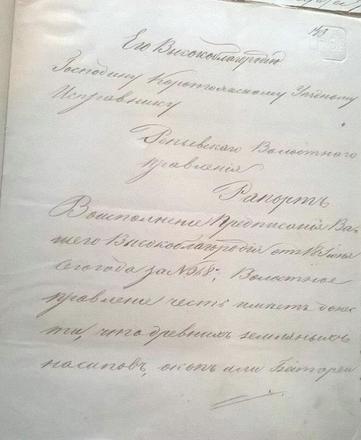 Его Высокоблагородію
Господину Коротоякскому Уѣздному
Исправнику
Волостного
правленія
Рапортъ
Во исполненіе Предписанія Ва-
шего Высокоблагородія отъ
сего года за №, Волостное
правленіе честь имѣетъ донес-
ти, что древнихъ земляныхъ
насыповъ, окоп или Батареи